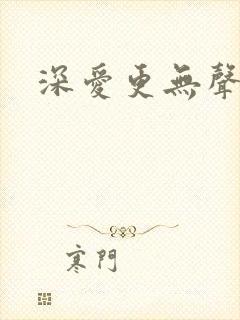 深愛更無聲
寒門